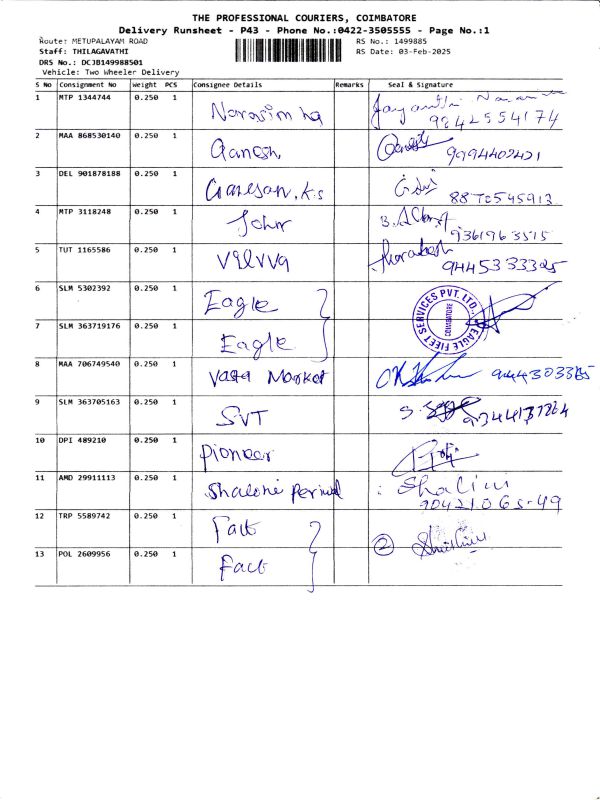 THE PROFESSIONAL COURIERS, COIMBATORE
Delivery Runsheet - P43 - Phone No.:0422-3505555 - Page No.:1
Route: METUPALAYAM ROAD RS No.: 1499885
Staff: THILAGAVATHI RS Date: 03-Feb-2025
DRS No.: DCJB149988501
Vehicle: Two Wheeler Delivery
S No Consignment No Weight PCS Consignee Details Remarks Seal & Signature
1 MTP 1344744 0.250 1 Narasimha Jayanthi
9842554174
2 MAA 868530140 0.250 1 Ganesh Ganesh 9994402421
3 DEL 901878188 0.250 1 Ganesan.K.S
4 MTP 3118248 0.250 1 John
9361963515
5 TUT 1165586 0.250 1 Vilvva
9445333325
6 SLM 5302392 0.250 1 Eagle EAGLE FLEET SERVICES PVT. LTD. COIMBATORE
7 SLM 363719176 0.250 1 Eagle
8 MAA 706749540 0.250 1 Vasta Market 9444303385
9 SLM 363705163 0.250 1 SVT
10 DPI 489210 0.250 1 Pioneer
11 AMD 29911113 0.250 1 Shalini Shalini
90421065-49
12 TRP 5589742 0.250 1 Fact
13 POL 2609956 0.250 1 Fact 2